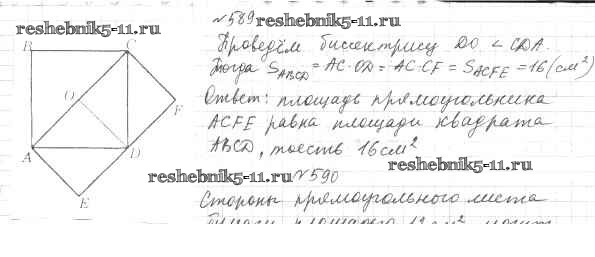 №589 reshebnik5-11.ru
reshebnik5-11.ru
B C
Проведём биссектрису DO ∠ CDA.
Тогда S_ABCD = AC·OD = AC·CF = S_ACFE = 16 (см²)
O F
Ответ: площадь прямоугольника
ACFE равна площади квадрата
A D
ABCD, то есть 16 см²
reshebnik5-11.ru
reshebnik5-11.ru №590
E
Стороны прямоугольного листа
бумаги площадью